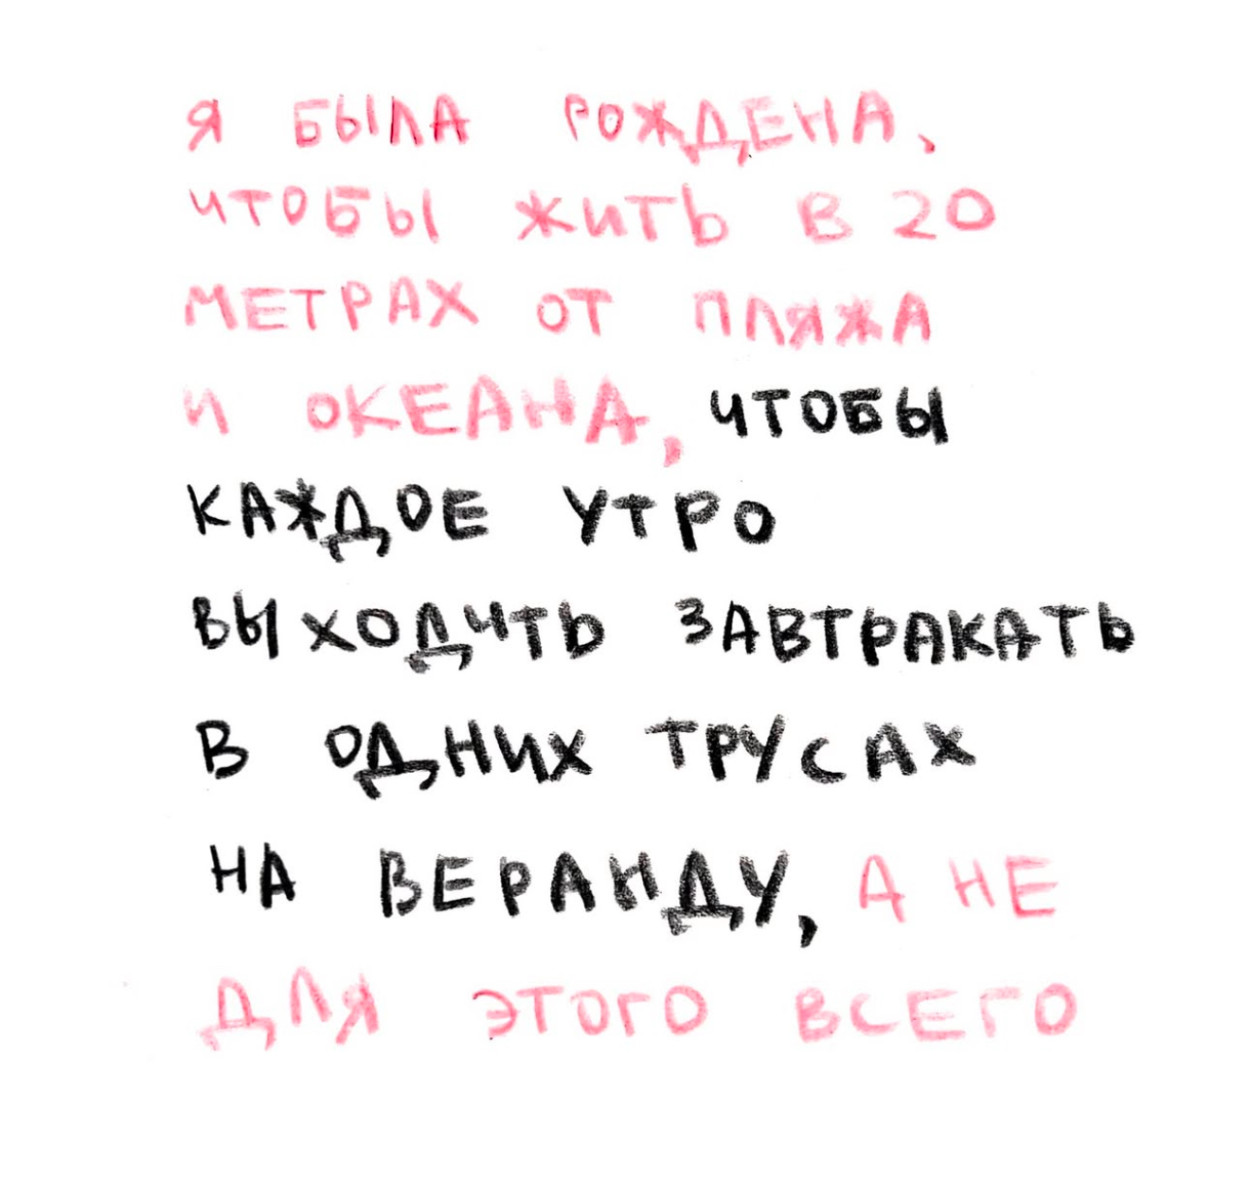 Я БЫЛА РОЖДЕНА,
ЧТОБЫ ЖИТЬ В 20
МЕТРАХ ОТ ПЛЯЖА
И ОКЕАНА, ЧТОБЫ
КАЖДОЕ УТРО
ВЫХОДИТЬ ЗАВТРАКАТЬ
В ОДНИХ ТРУСАХ
НА ВЕРАНДУ, А НЕ
ДЛЯ ЭТОГО ВСЕГО